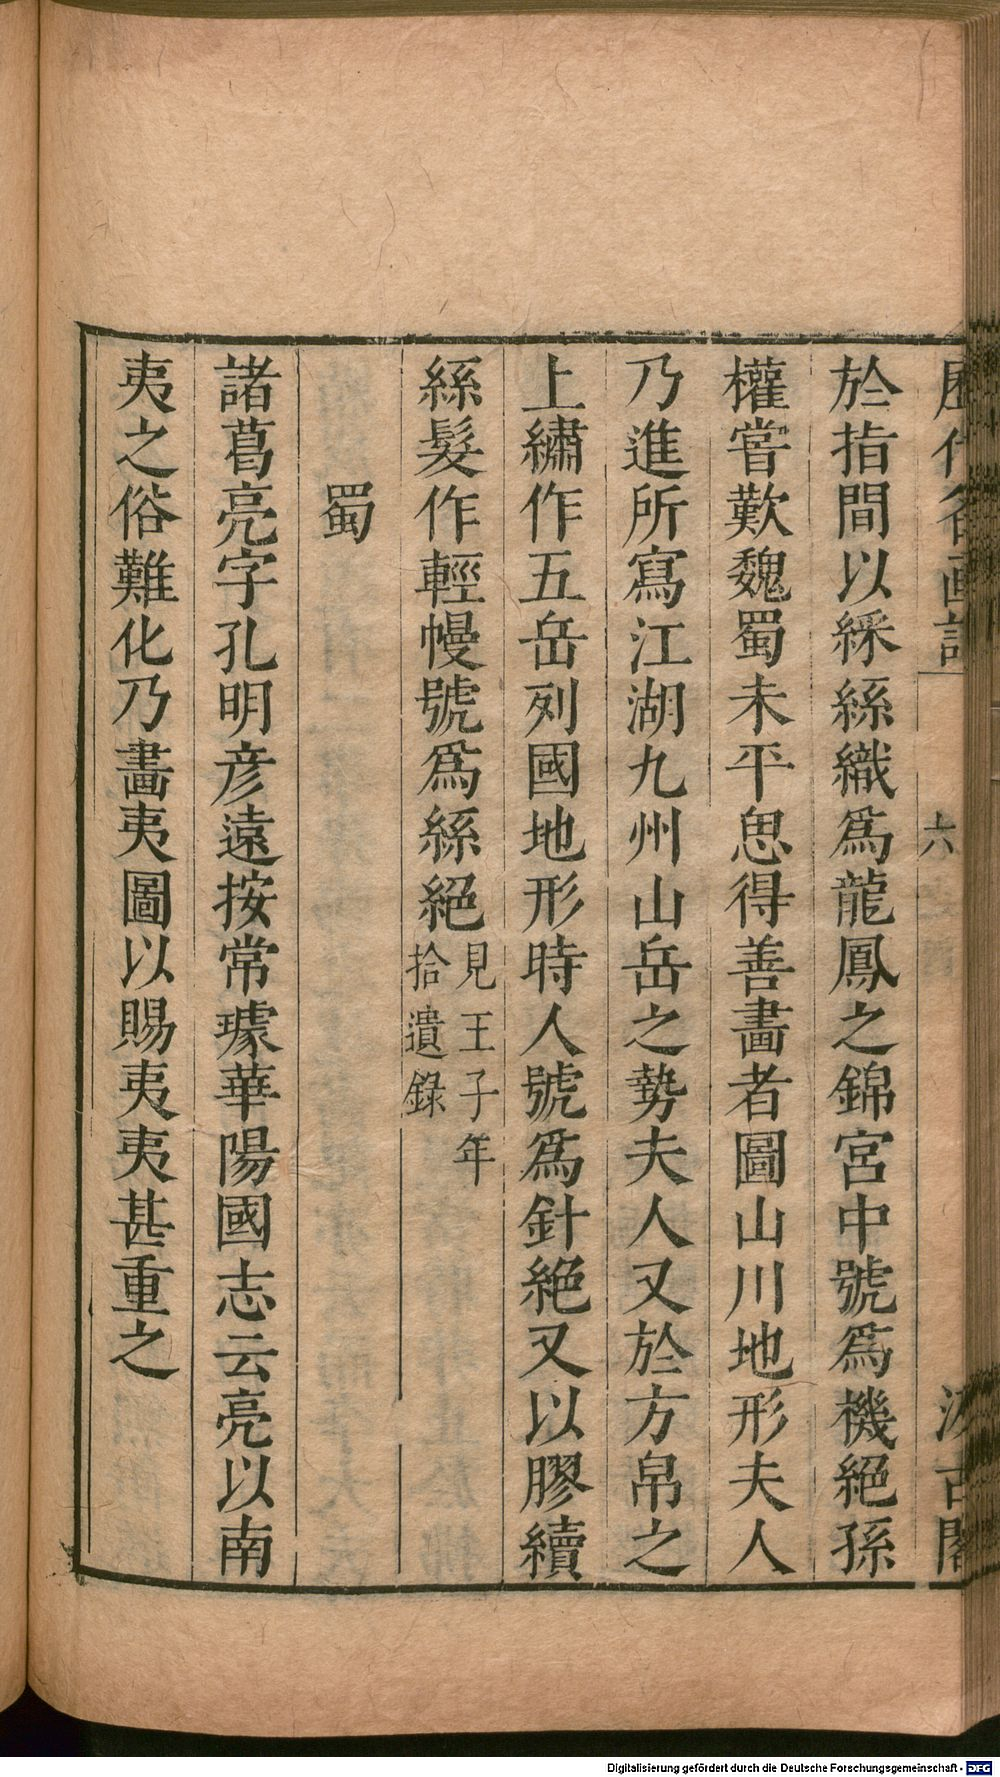 歷代名画記
六
汲古閣
於指間以綵絲織爲龍鳳之錦宮中號爲機絕孫
權嘗歎魏蜀未平思得善畫者圖山川地形夫人
乃進所寫江湖九州山岳之勢夫人又於方帛之
上繡作五岳列國地形時人號爲針絕又以膠續
絲髮作輕幔號爲絲絕見王子年
拾遺錄
蜀
諸葛亮字孔明彥遠按常璩華陽國志云亮以南
夷之俗難化乃畫夷圖以賜夷夷甚重之
Digitalisierung gefördert durch die Deutsche Forschungsgemeinschaft - DFG